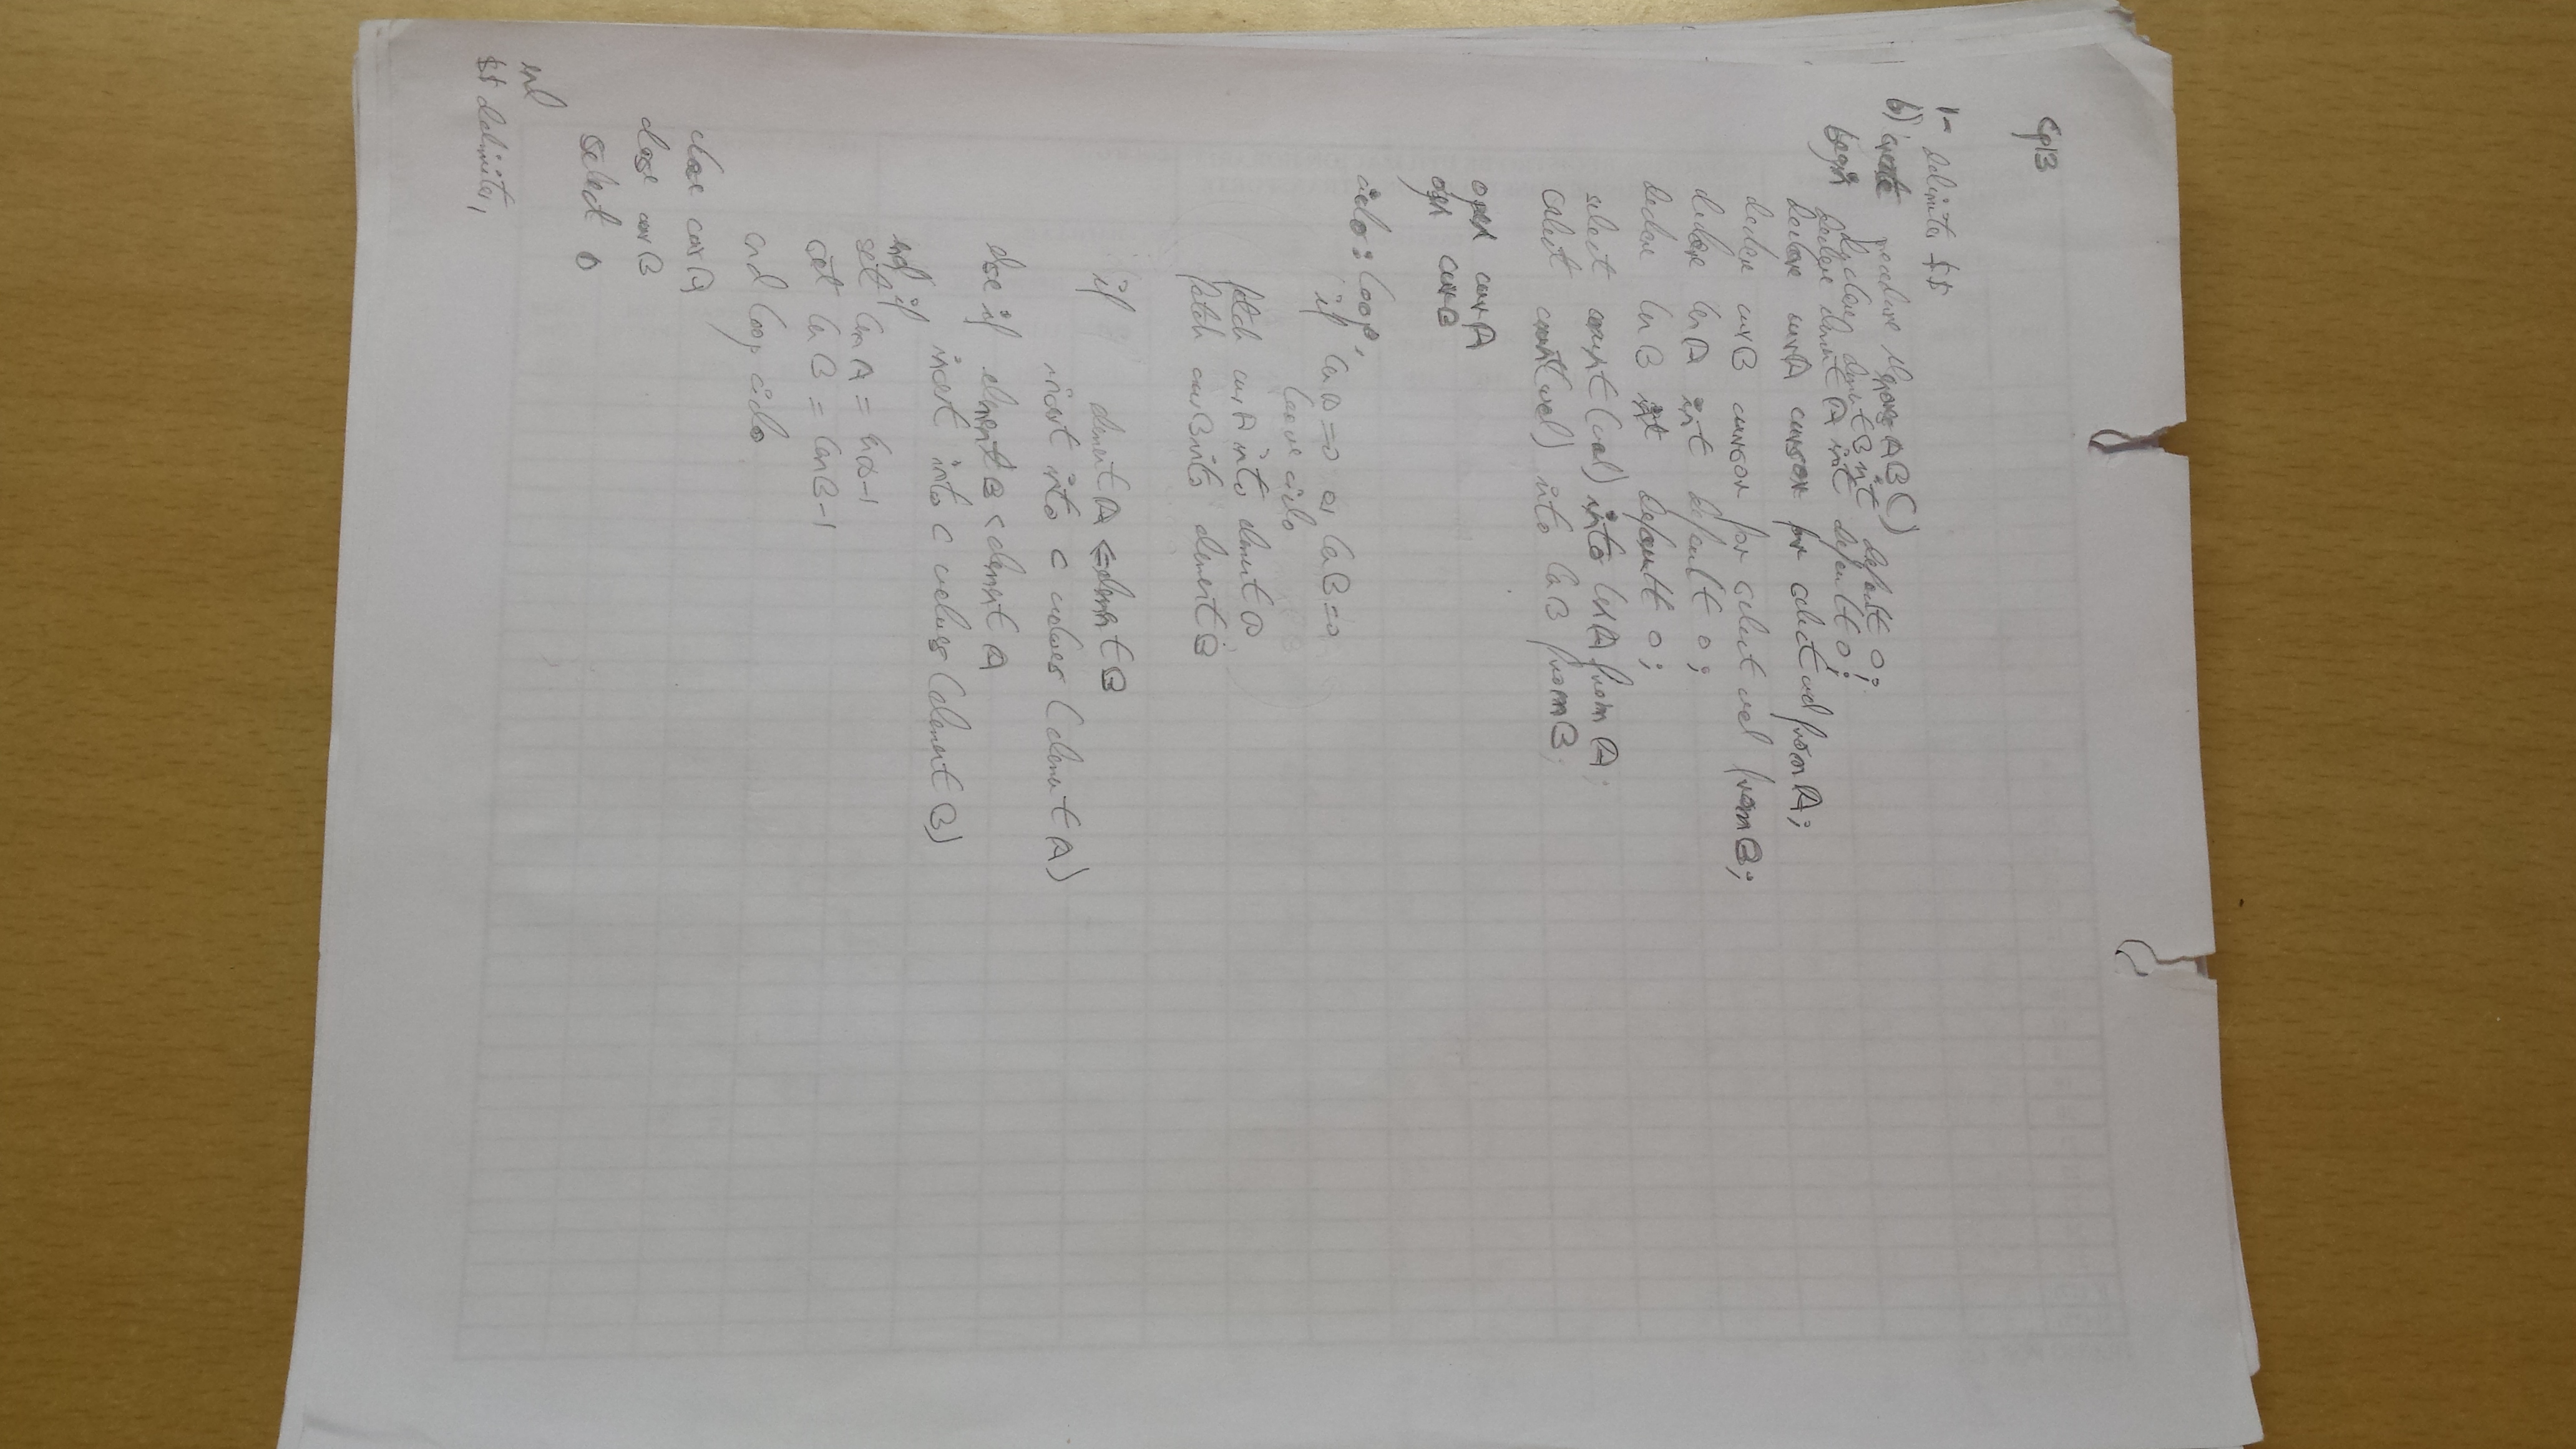 Cp13
1- delimiter $$
b) create procedure ABC()
begin declare elementB int default 0;
declare elementA int default 0;
declare curA cursor for select val from A;
declare curB cursor for select val from B;
declare lenA int default 0;
declare lenB int default 0;
select count(val) into lenA from A;
select count(val) into lenB from B;
open curA
open curB
ciclo: loop
if lenA = 0 or lenB = 0
leave ciclo
fetch curA into elementA
fetch curB into elementB
if elementA <= elementB
insert into C values (elementA)
else if elementB < elementA
insert into C values (elementB)
end if
set lenA = lenA-1
set lenB = lenB-1
end loop ciclo
close curA
close curB
select 0
end
$$ delimiter ;